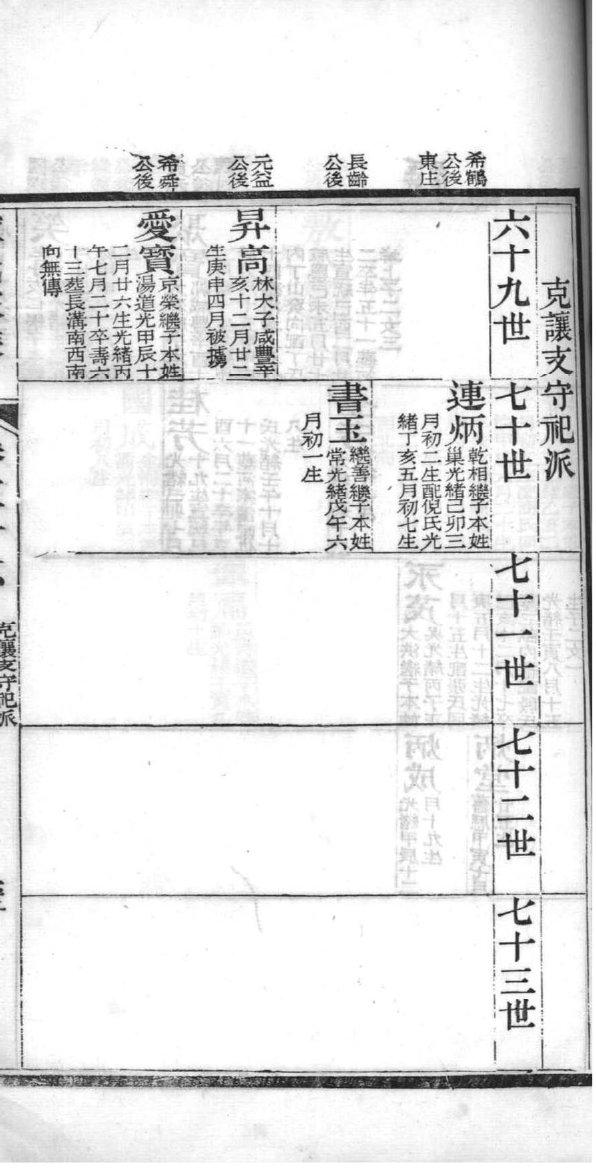 希鶴
公後
東庄
長齡
公後
元益
公後
希舜
公後
克讓支守祀派
六十九世
昇高
林大子咸豐辛
亥十二月廿二
生庚申四月被擄
愛寶
京榮繼子本姓
湯道光甲辰十
二月廿六生光緒丙
午七月二十卒壽六
十三葬長溝南西南
向無傳
七十世
連炳
乾相繼子本姓
巢光緒己卯三
月初二生配倪氏光
緒丁亥五月初七生
書玉
繞善繼子本姓
常光緒戊午六
月初一生
七十一世
七十二世
七十三世
克讓支守祀派